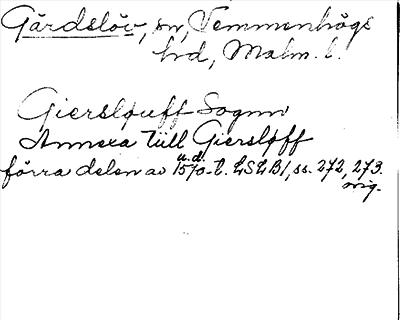 Gärdslöv, sn, Vemmenhögs
hd, Malm. l.
Giersløuff Sognn
Annexa till Giersløff
u.d.
förra delen av 1570-t. LSLB1, ss. 272, 273.
orig.